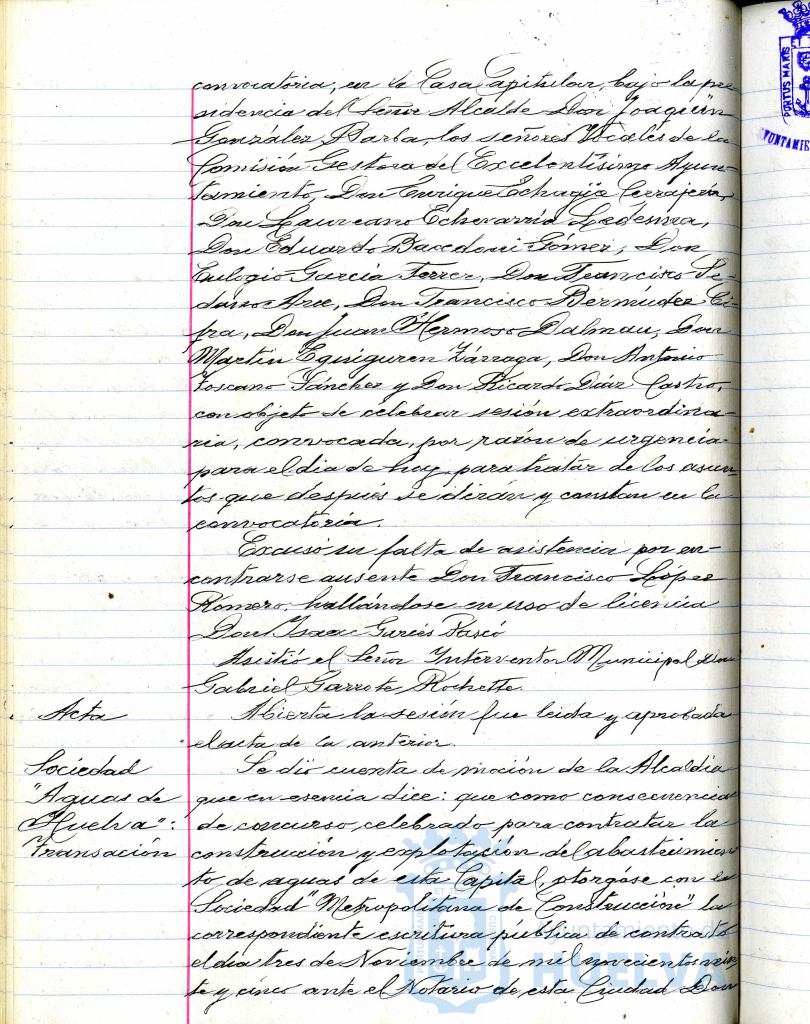 convocatoria, en la Casa Capitular, bajo la pre
sidencia del Señor Alcalde Don Joaquín
González Barba, los señores Vocales de la
Comisión Gestora del Excelentísimo Ayun-
tamiento, Don Enrique Echagüe Cerrajería,
Don Laureano Echevarría Ledesma,
Don Eduardo Gómez, Don
Eulogio García Ferrer, Don Francisco Se-
Arce, Don Francisco Bermúdez Ci-
fra, Don Juan Hermoso Dalmau, Don
Martín Eguiguren Zárraga, Don Antonio
Toscano Sánchez y Don Ricardo Díaz Castro,
con objeto de celebrar sesión extraordina-
ria, convocada, por razón de urgencia
para el dia de hoy, para tratar de los asun-
tos que después se dirán y constan en la
convocatoria.
Excusó su falta de asistencia por en-
contrarse ausente Don Francisco López
Romero, hallándose en uso de licencia
Don Isaac
Asistió el Señor Interventor Municipal Don
Gabriel Garrote Rochette.
Acta
Abierta la sesión fue leida y aprobada
el acta de la anterior.
Sociedad
"Aguas de
Huelva":
Transación
Se dió cuenta de moción de la Alcaldía
que en esencia dice: que como consecuencia
de concurso celebrado para contratar la
construcción y explotación del abastecimien
to de aguas de esta Capital, otorgóse con la
Sociedad "Metropolitana de Construcción" la
correspondiente escritura pública de contrato
el dia tres de Noviembre de mil novecientos vein
te y cinco ante el Notario de esta Ciudad Don
PORTUS MARIS
YUNTAMIE
Ayuntamiento de
HUELVA